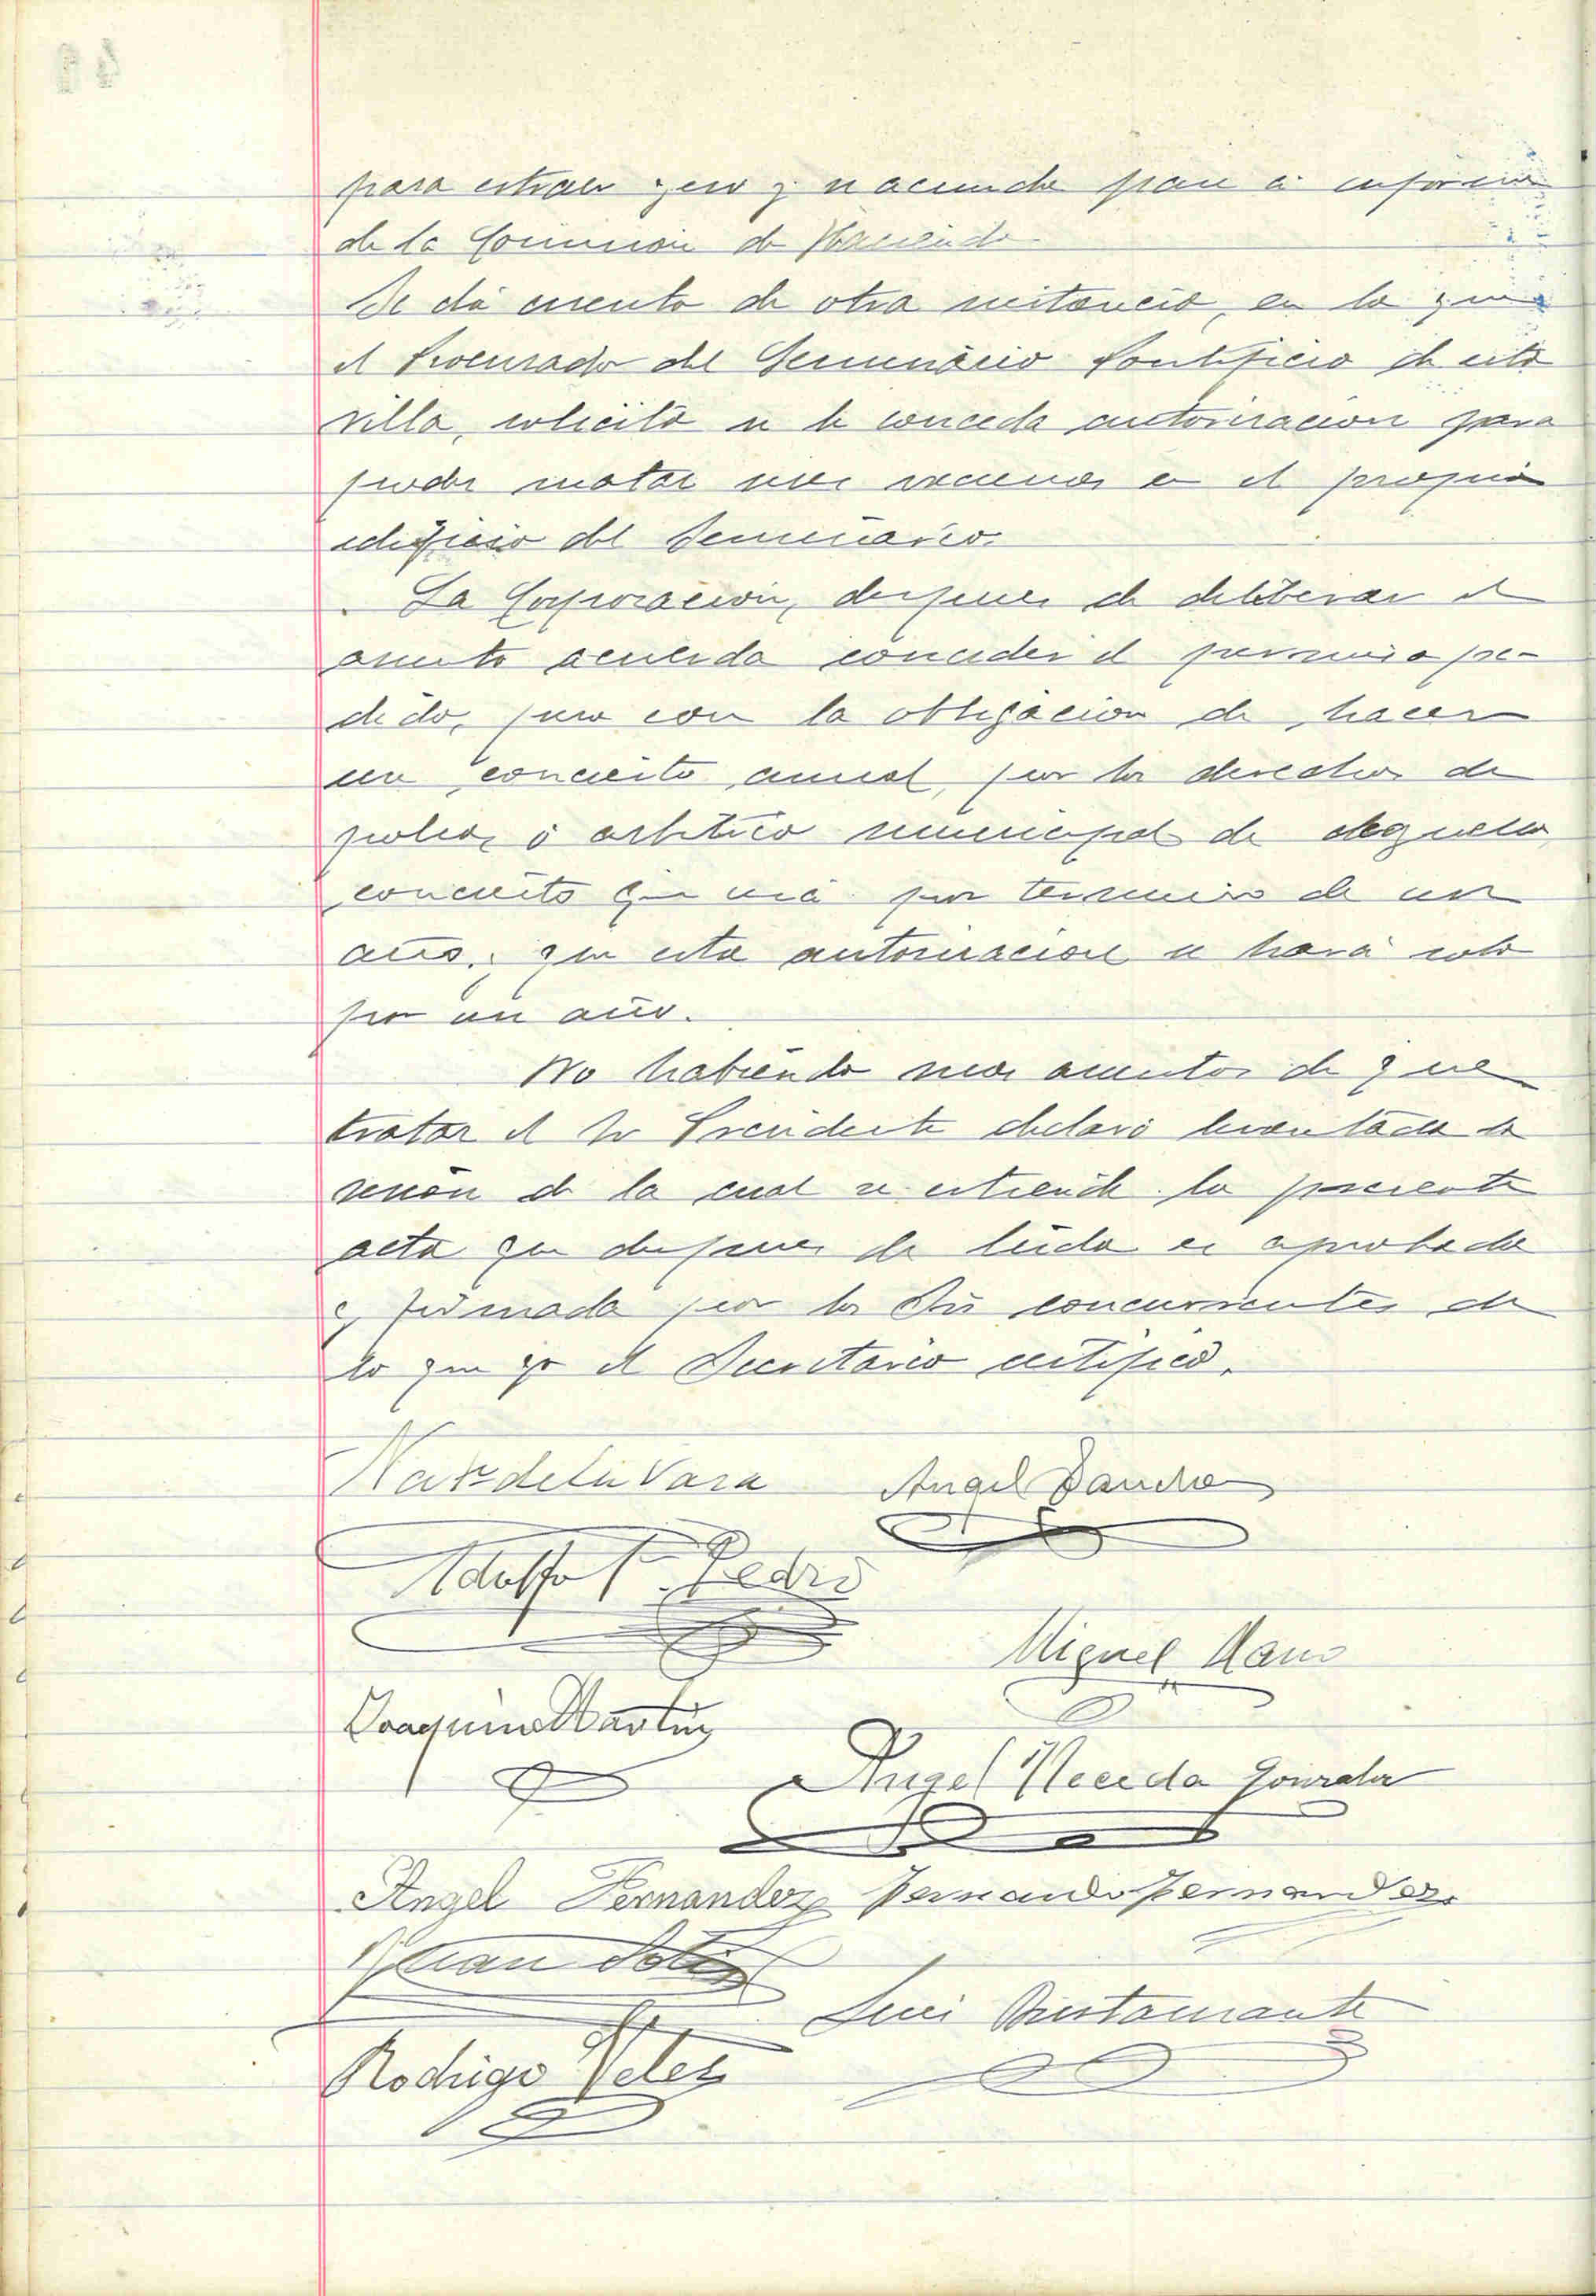 para estraer yeso y se acuerda pase a informe
de la Comisión de Hacienda
Se dá cuenta de otra instancia, en la que
el Procurador del Seminario Pontificio de esta
villa, solicita se le conceda autorización para
poder matar reses vacunas en el propio
edificio del Seminario.
La Corporación, despues de deliberar el
asunto acuerda conceder el permiso pe-
dido, pero con la obligación de hacer
un concierto anual, por los derechos de
ó arbitrio municipal de deguello
concierto que será por termino de un
año, que esta autorización se hará solo
por un año.
No habiendo mas asuntos de que
tratar el Sr Presidente declaró levantada la
sesión de la cual se estiende la presente
acta que despues de leida es aprobada
y firmada por los Srs concurrentes de
lo que yo el Secretario certifico.
de la Vara Angel Sancho
Adolfo Pedro
Miguel
Joaquin Martin
Angel Gonzalez
Angel Fernandez Fernando Fernandez
Juan Solis
Luis Bustamante
Rodrigo Velez